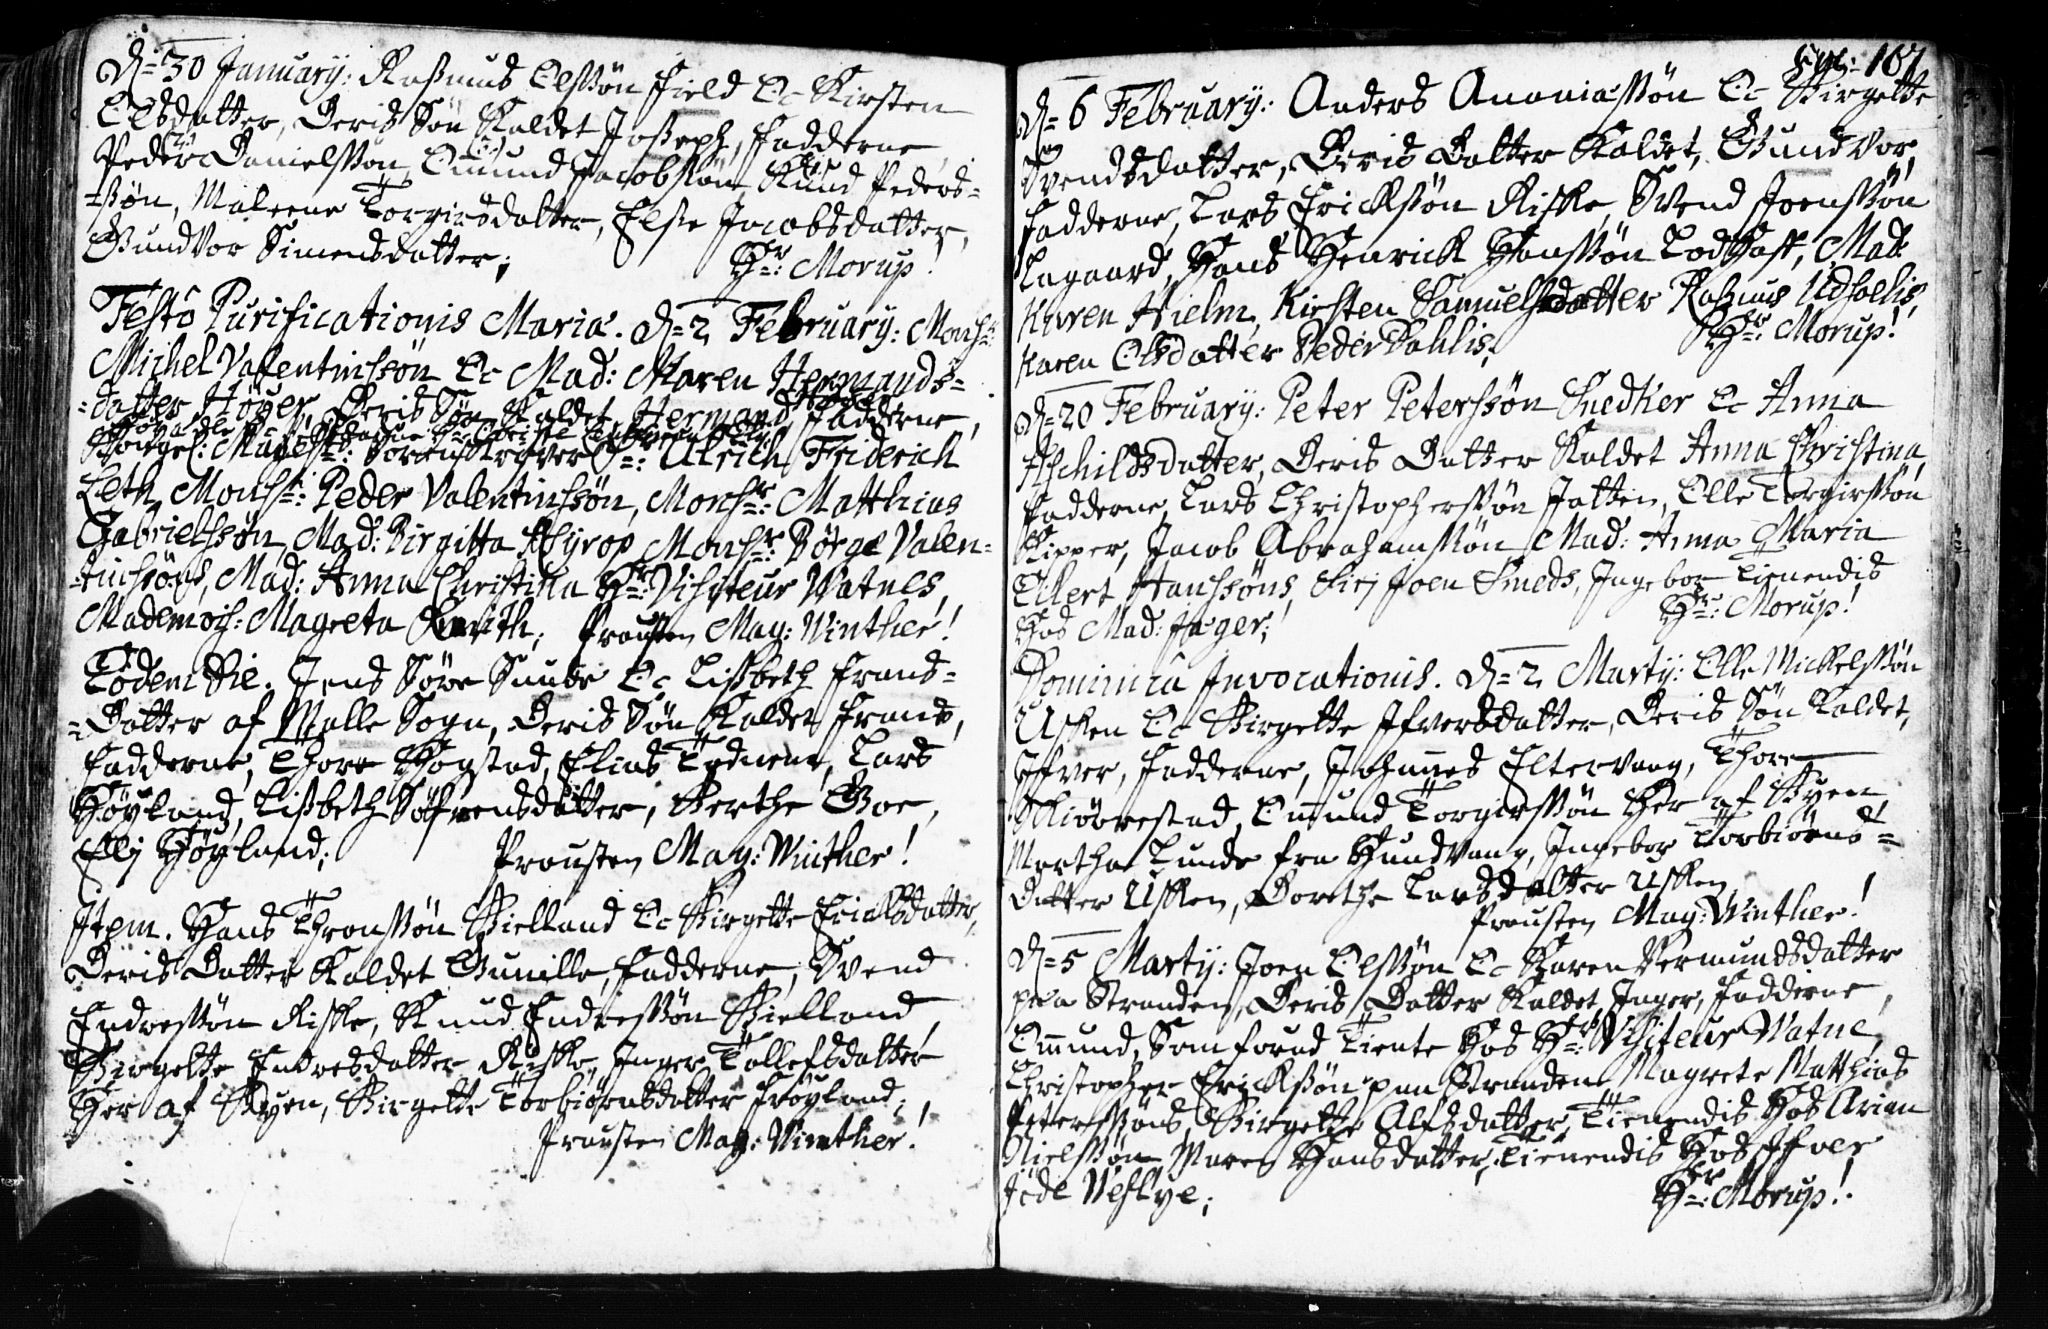 D= 30 January: Rasmus Elssøn Field Oc Kirsten
Elsdatter, Deris Søn Kaldet Joseph, Fadderne
Peder Danielssøn, Omund Jacobssøn Knud Peders=
=søn, Maleene Torgirsdatter, Else Jacobsdatter,
Gundvor Simensdatter; Hr: Morup!
Festo Purificationis Mariæ. D= 2 February: Monsr:
Michel Valentinssøn Oc Mad: Maren Hermands=
=datter Høyer, Deris Søn Kaldet Hermand, Fadderne,
Kongel: Mayestts: Sorenskriver Sr: Ulrich Friderich
Leth, Monsr: Peder Valentinssøn, Monsr: Matthias
Gabrielssøn, Mad: Birgitta Ryrop, Monsr: Børge Valen=
=tinssøns, Mad: Anna Christina Hr: Visiteur Vatnes,
Mademois: Magreta Smith; Prousten Mag: Winther!
Eodem Die. Jens Søre Sunde Oc Lisbeth Frands=
=Datter af Malle Sogn, Deris Søn Kaldet Frands,
Fadderne, Thore Høgstad, Elias Tednene, Lars
Høyland, Lisbeth Søfrensdatter, Berthe Goe,
Elj Høyland; Prousten Mag: Winther!
Item. Hans Thronssøn Bielland Oc Birgette Ericksdatter,
Deris Datter Kaldet Gunille, Fadderne, Svend
Endressøn Riske, Knud Endressøn Bielland,
Birgette Endresdatter Riske, Inger Tollefsdatter
Her af Byen, Birgette Torbiørnsdatter Frøyland;
Prousten Mag: Winther!
167
D= 6 February: Anders Ananiassøn Oc Birgette
Svendsdatter, Deris Datter Kaldet, Gundvor,
Fadderne, Lars Erickssøn Riske, Svend Joenssøn
Lagaard, Hans Henrick Hanssøn Lodhaft, Mad:
Karen Hielm, Kirsten Samuelsdatter Rasmus Udsoelis,
Karen Elsdatter Peder Dahlis. Hr: Morup!
D= 20 February: Peter Peterssøn Snedker Oc Anna
Aschildsdatter, Deris Datter Kaldet Anna Christina,
Fadderne, Lars Christopherssøn Jatten, Elle Torgirssøn
Kipper, Jacob Abrahamssøn, Mad: Anna Maria
Ellert Hanssøns, Siri Joen Smeds, Ingebor Tienendis
Hos Mad: Jæger; Hr: Morup!
Dominica Invocationis. D= 2 Marty: Elle Mickelssøn
Usken Oc Birgette Ifversdatter, Deris Søn Kaldet,
Iffver, Fadderne, Johannes Eltervaag, Thore
Miørestad, Omund Torgirssøn Her af Byen
Martha Lunde fra Hundvaag, Ingebor Torbiørns=
Datter Usken, Dorethe Larsdatter Usken
Prousten Mag: Winther!
D= 5 Marty: Joen Elssøn Oc Karen Vermundsdatter
paa Stranden, Deris Datter Kaldet Inger, Fadderne,
Omund, Som forud Tiente Hos Hr: Visiteur Watne,
Christopher Erickssøn paa Stranden, Magrete Matthias
Peterssøns, Birgette Alfsdatter, Tienendis Hos Arian
Nielssøn, Maren Hansdatter, Tienendis Hos Iffver
Jøde Veskye; Hr: Morup!